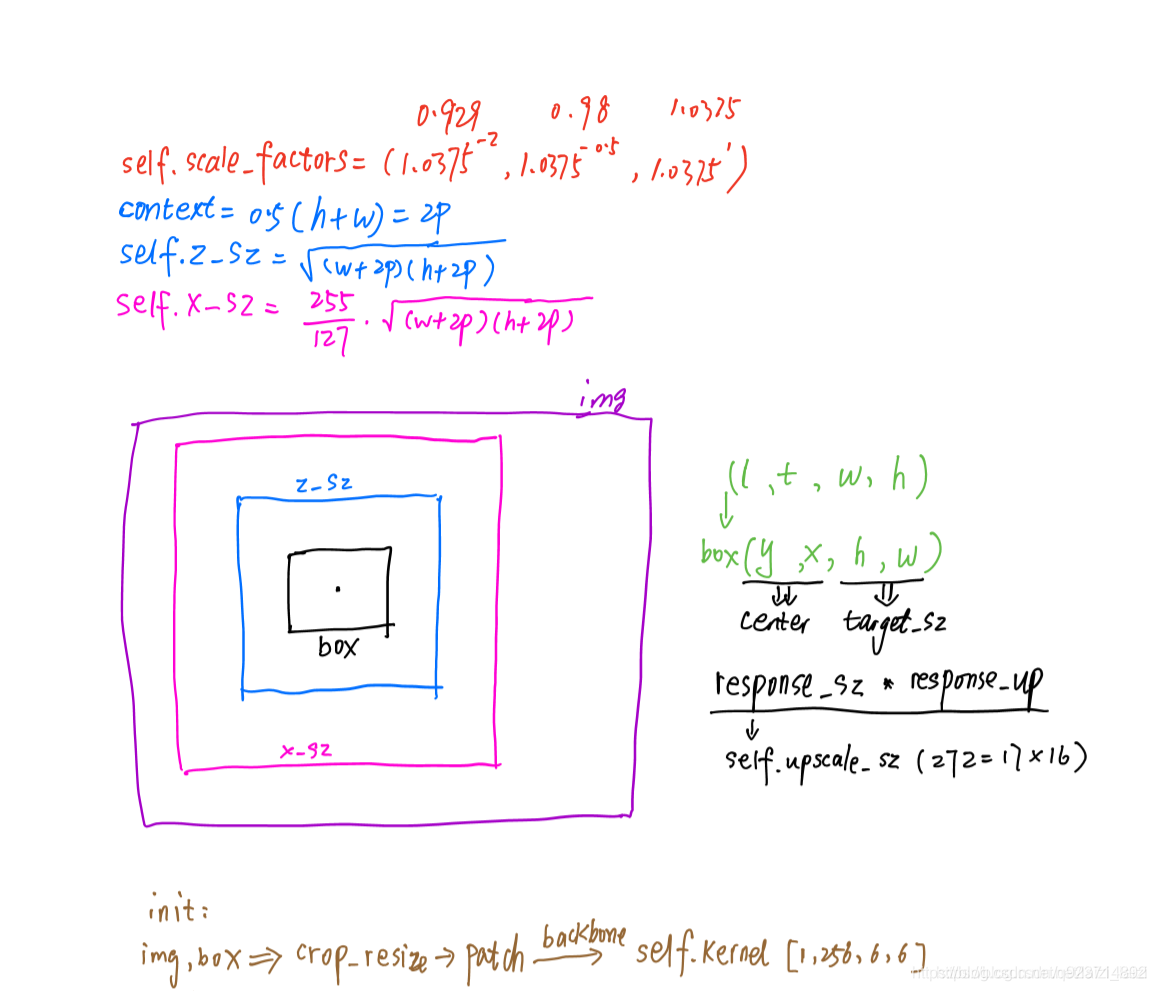 0.929 0.98 1.0375
self.scale_factors= (1.0375⁻², 1.0375⁻⁰·⁵, 1.0375¹)
context= 0.5(h+w)= 2p
self.z_sz = √(w+2p)(h+2p)
self.x_sz = 255/127 · √(w+2p)(h+2p)
img
z_sz
box
x_sz
(l, t, w, h)
↓
box(y, x, h, w)
⇓ ⇓
center target_sz
response_sz * response_up
↓
self.upscale_sz (272=17×16)
init:
img, box ⇒ crop_resize → patch backbone→ self.kernel [1,256,6,6]